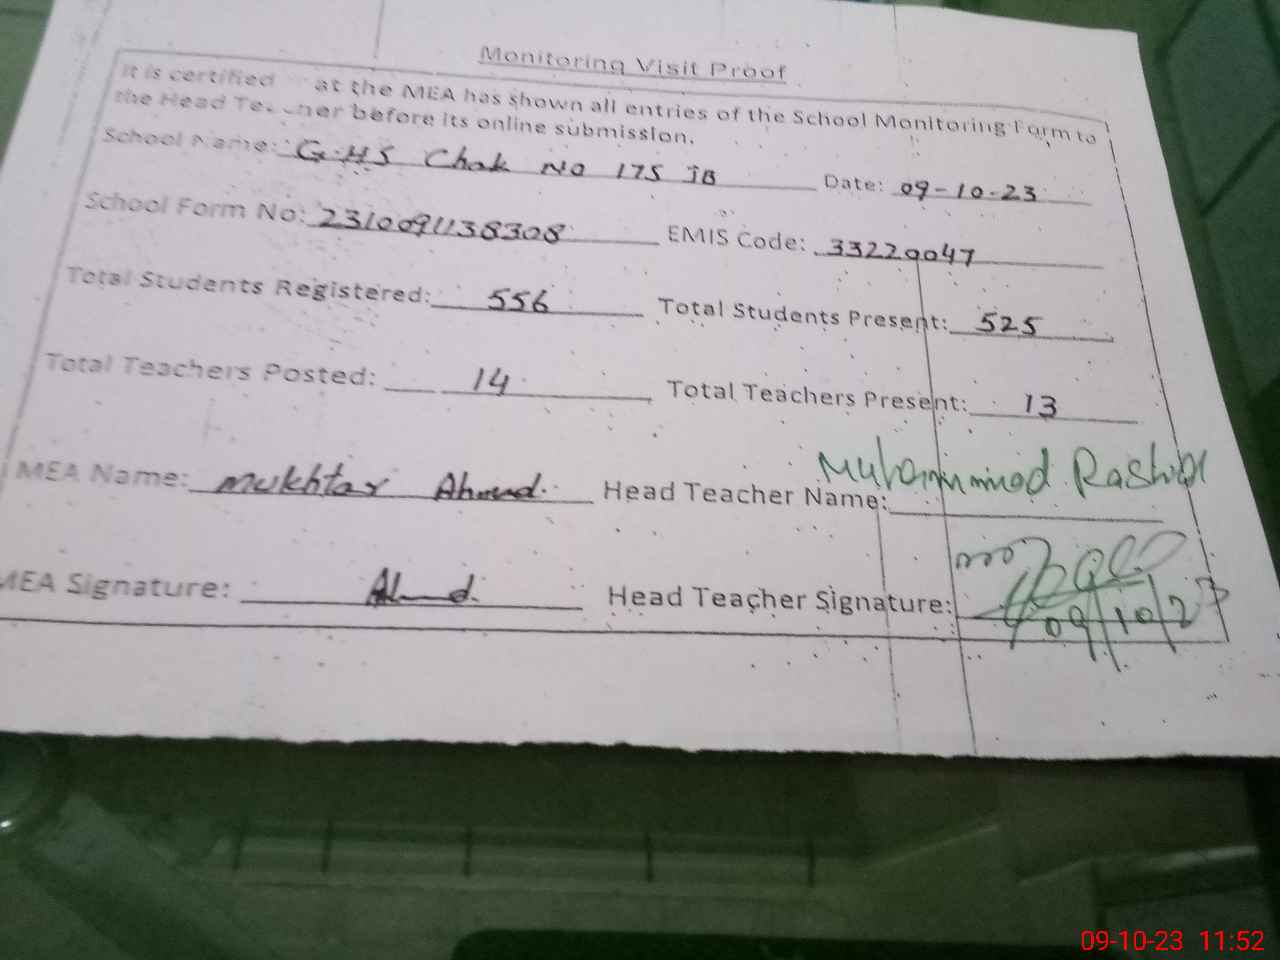 Monitoring Visit Proof
It is certified at the MEA has shown all entries of the School Monitoring Form to
the Head Teacher before its online submission.
School Name: G.H.S Chak No 175 JB Date: 09-10-23
School Form No: 2310091138308 EMIS Code: 33220047
Total Students Registered: 556 Total Students Present: 525
Total Teachers Posted: 14 Total Teachers Present: 13
MEA Name: Mukhtar Ahmad. Head Teacher Name: Muhammad Rashid
MEA Signature: Ahmad. Head Teacher Signature:
09/10/23
09-10-23 11:52